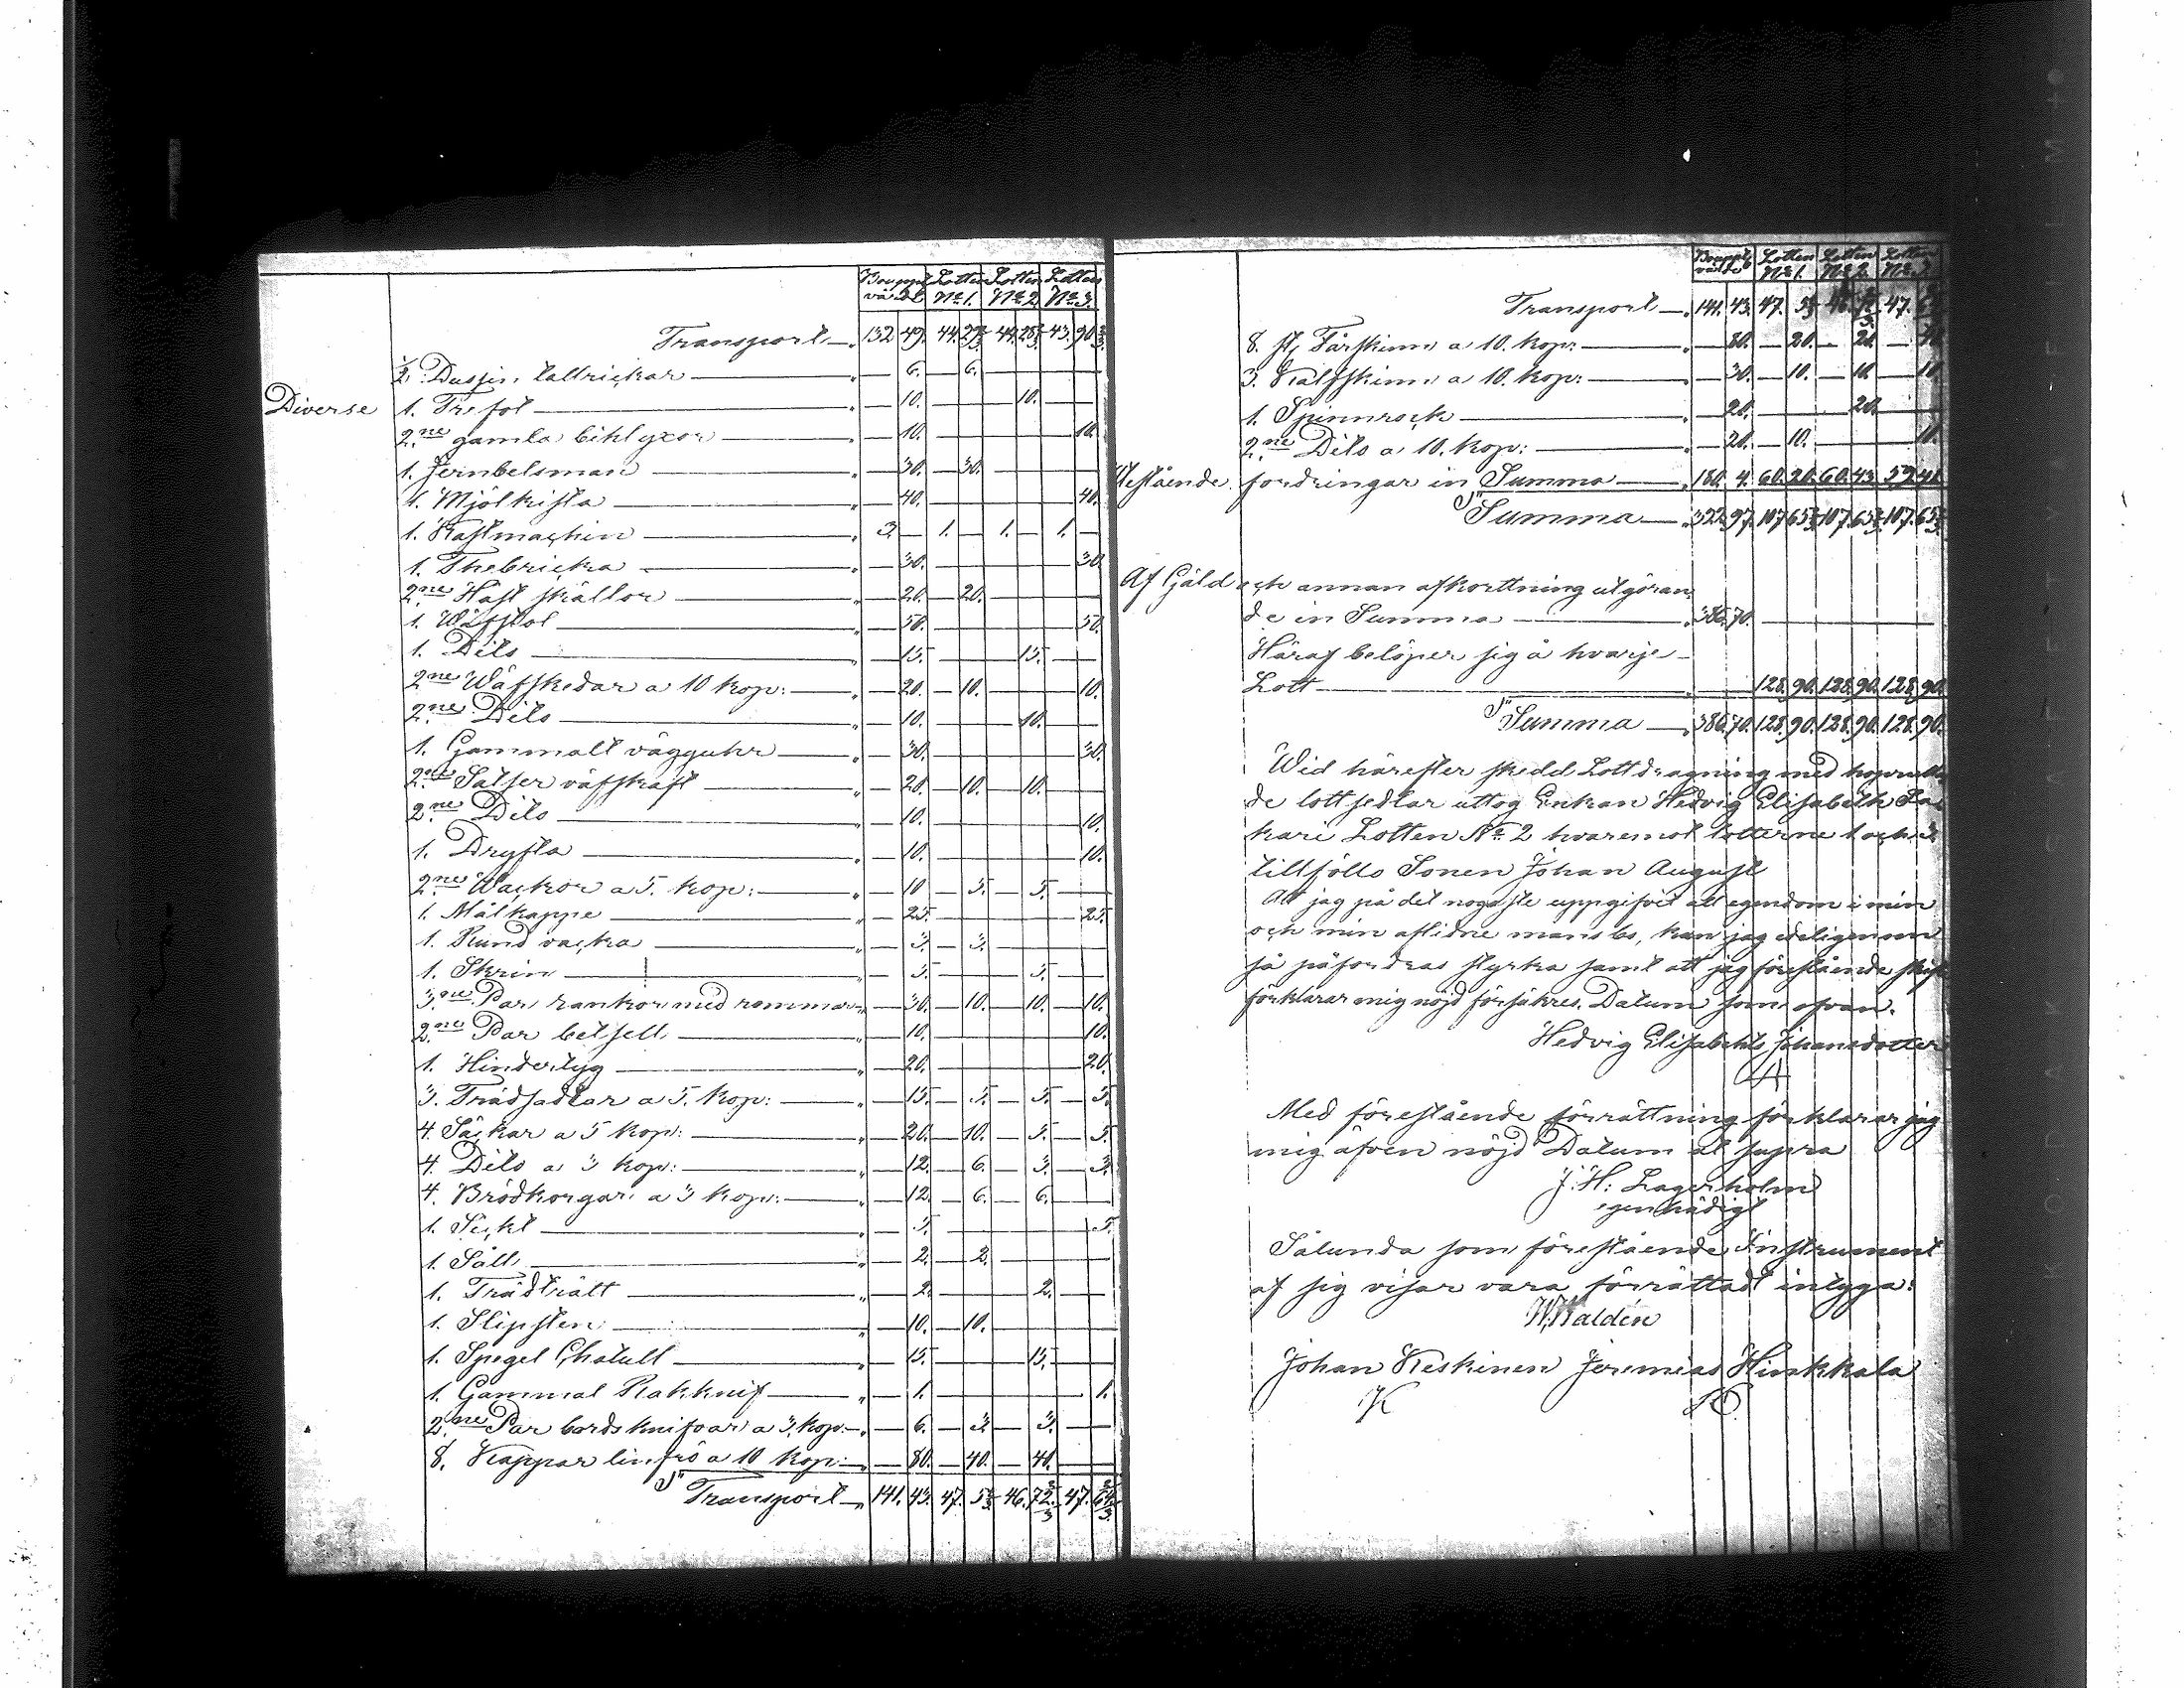 Bouppt. Lotten Lotten Lotten
värde No 1. No 2 No 3.
Transport 132 49. 44. 29 2/3 44. 28 2/3 43. 90 2/3
1/2 Dussin tallrickar — 6. — 6.
Diverse 1. Trefot — 10. — 10.
2ne gamla bihlyxor — 10. — 10.
1. Jernbelsman — 30. — 30.
1. Mjölkista — 40. — 40.
1. Kastmachin 3. — 1. — 1. — 1. —
1. Thebricka — 30. — 30
2ne Häst skällor — 20. — 20.
1. Wäfstol — 50. — 50.
1. Dito — 15. — 15.
2ne Wäfskedar a 10 kop: — 20. — 10. — 10.
2ne Dito — 10. — 10.
1. Gammalt vägguhr — 30. — 30.
2ne Satser väfskaft — 20. — 10. — 10.
2ne Dito — 10. — 10.
1. Dryfta — 10. — 10.
2ne Wackor a 5. kop: — 10 — 5. — 5.
1. Målkappe — 25. — 25.
1. Rund vacka — 3. — 3.
1. Skrin — 5. — 5.
3ne Par rankor med rammar — 30. — 10. — 10. — 10.
2ne Par betsell — 10. — 10.
1. Hindertyg — 20. — 20.
3. Trädsadlar a 5. kop: — 15. — 5. — 5. — 5.
4. Säckar a 5 kop: — 20. — 10. — 5. — 5.
4. Dito a 3 kop: — 12. — 6. — 3. — 3.
4. Brödkorgar a 3 kop: — 12. — 6. — 6.
1. Sickl — 5. — 5.
1. Såll — 2. — 2.
1. Trådtrått — 2. — 2.
1. Slipsten — 10. — 10.
1. Spegel Chatull — 15. — 15.
1. Gammal Rakknif — 1. — 1.
2ne Par bordsknifvar a 3. kop: — 6. — 3 — 3.
8. Kappar linfrö a 10 kop: — 80. — 40. — 40.
Sn Transport 141. 43. 47. 5 2/3 46. 72 2/3 47. 64 2/3
Bouppt. Lotten Lotten Lotten
värde No 1. No 2. No 3.
Transport 141. 43. 47. 5 2/3 47.
8. st. Fårskinn a 10. kop: — 80. — 20. — 20. —
3. Kalfskinn a 10. kop: — 30. — 10. — 10. — 10.
1. Spinnrock — 20. — 20.
2ne Dito a 10. kop: — 20. — 10. — 10.
Utestående fordringar in Summa 180. 4. 60. 20. 60. 43 59. 41
Sn Summa 322. 97. 107 65 2/3 107. 65 2/3 107. 65 2/3
Af Gäld och annan afkorttning utgöran
de in Summa 386. 70.
Häraf belöper sig å hvarje
Lott 128. 90. 128. 90. 128. 90.
Sn Summa 386. 70. 128. 90. 128. 90. 128. 90.
Wid härefter skedd Lottdragning med
de lottsedlar uttog Enkan Hedvig Elisabeth
kari Lotten No 2 hvaremot lotterne 1 och 3
tillföllo Sonen Johan August
Att jag på det nogaste uppgifvit all egendom i min
och min aflidne mans bo, kan jag edeligen om
så påfordras styrka samt att jag förestående
förklarar mig nöjd försäkres. Datum som ofvan.
Hedvig Elisabeth Johansdotter
Med förestående förrättning förklarar jag
mig äfven nöjd Datum ut supra
J: H: Lagerholm
egenhädigt
Sålunda som förestående Instrument
af sig visar vara förrättadt intyga:
W. Waldén
Johan Keskinen Jeremias Hinkkala
K